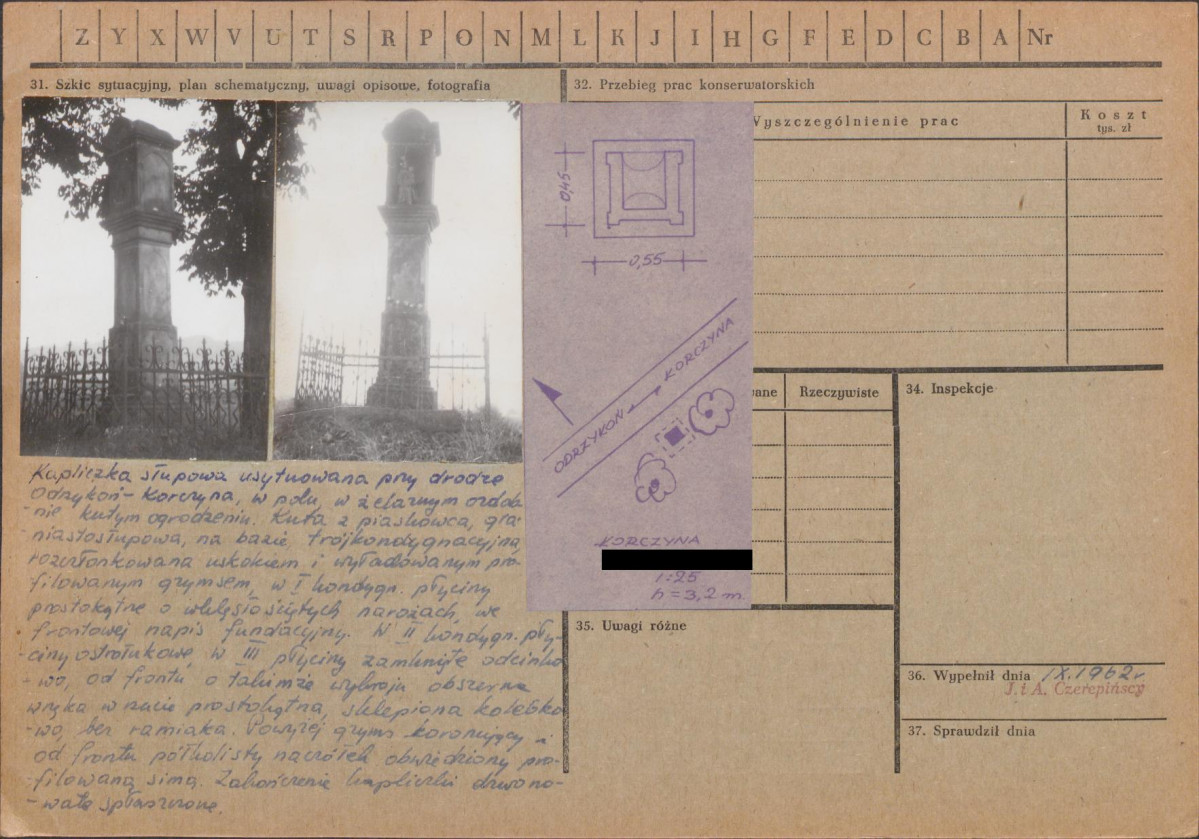 Z Y X W V U T S R P O N M L K J I H G F E D C B A Nr
31. Szkic sytuacyjny, plan schematyczny, uwagi opisowe, fotografia
32. Przebieg prac konserwatorskich
Wyszczególnienie prac
Koszt
tys. zł
0,45
0,55
ODRZYKOŃ KORCZYNA
KORCZYNA
1:25
h = 3,2 m.
Kapliczka słupowa usytuowana przy drodze
Odrzykoń - Korczyna, w polu, w żelaznym ozdob
-nie kutym ogrodzeniu. Kuta z piaskowca, gra-
niastosłupowa, na bazie, trójkondygnacyjna,
rozczłonkowana uskokiem i wyładowanym pro-
filowanym gzymsem, w I kondygn. płyciny
prostokątne o wklęsło ściętych narożach, we
frontowej napis fundacyjny. W II kondygn. pły-
-ciny ostrołukowe, w III płyciny zamknięte odcinko
-wo, od frontu o takimże wykroju obszerna
wnęka w rzucie prostokątna, sklepiona kolebko
-wo, bez ramiaka. Powyżej gzyms koronujący i
od frontu półkolisty naczółek obwiedziony pro-
filowaną simą. Zakończenie kapliczki dzwono-
-wate spłaszczone.
ane
Rzeczywiste
34. Inspekcje
35. Uwagi różne
36. Wypełnił dnia IX.1962r
J. i A. Czerepińscy
37. Sprawdził dnia